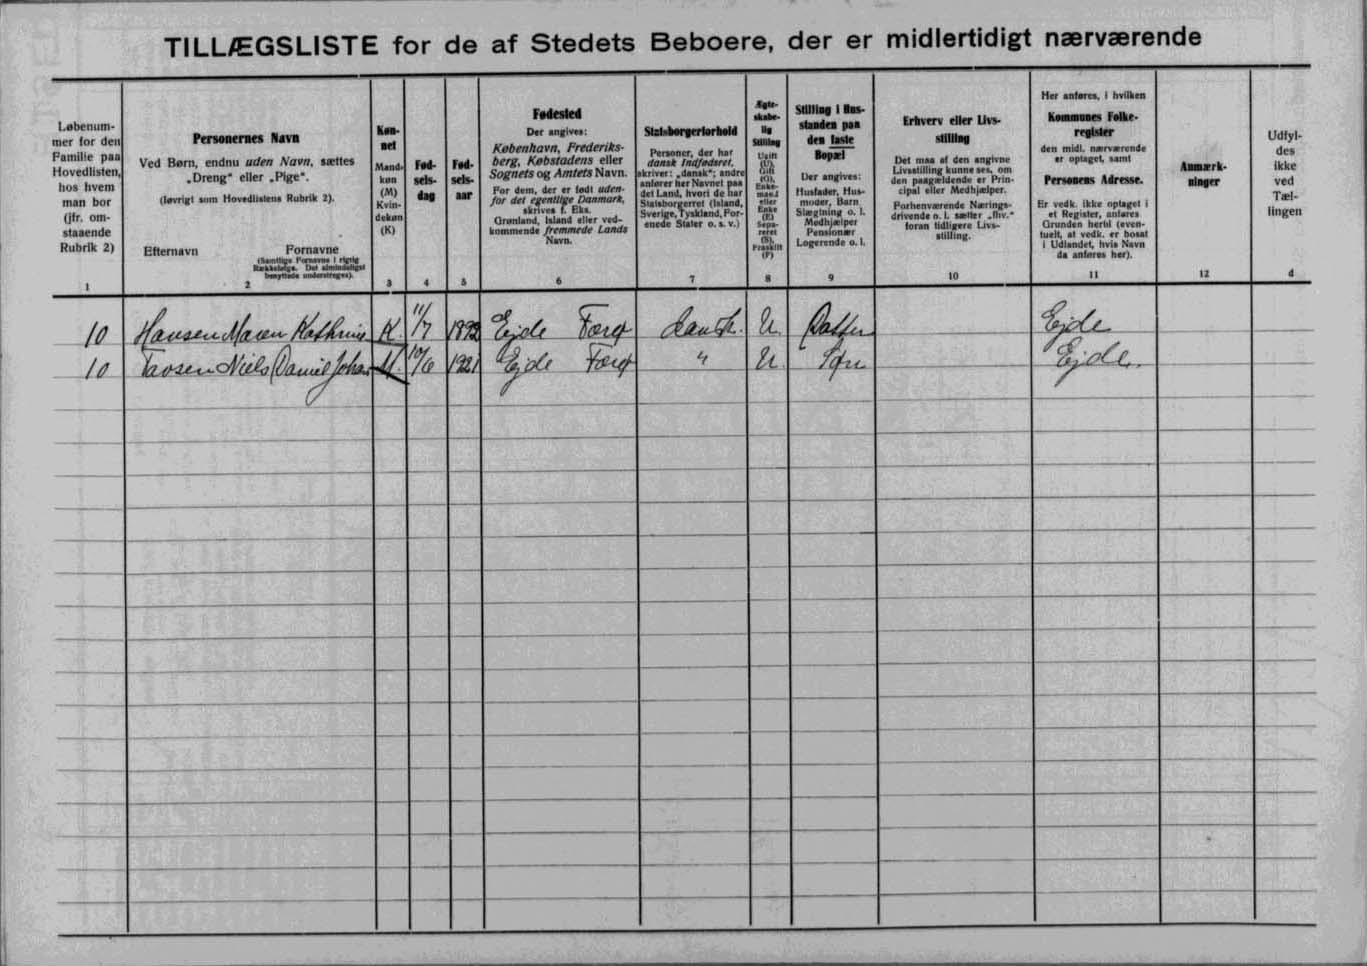 TILLÆGSLISTE for de af Stedets Beboere, der er midlertidigt nærværende
Løbenum-
mer for den
Familie paa
Hovedlisten,
hos hvem
man bor
(jfr. om-
staaende
Rubrik 2)
1
Personernes Navn
Ved Børn, endnu uden Navn, sættes
„Dreng“ eller „Pige“.
(Iøvrigt som Hovedlistens Rubrik 2).
Efternavn Fornavne
(Samtlige Fornavne i rigtig
Rækkefølge. Det almindeligst
benyttede understreges).
2
Køn-
net
Mand-
køn
(M)
Kvin-
dekøn
(K)
3
Fød-
sels-
dag
4
Fød-
sels-
aar
5
Fødested
Der angives:
København, Frederiks-
berg, Købstadens eller
Sognets og Amtets Navn.
For dem, der er født uden-
for det egentlige Danmark,
skrives f. Eks.
Grønland, Island eller ved-
kommende fremmede Lands
Navn.
6
Statsborgerforhold
Personer, der har
dansk Indfødsret,
skriver: „dansk“; andre
anfører her Navnet paa
det Land, hvori de har
Statsborgerret (Island,
Sverige, Tyskland, For-
enede Stater o. s. v.)
7
Ægte-
skabe-
lig
Stilling
Ugift
(U),
Gift
(G),
Enke-
mand
eller
Enke
(E)
Sepa-
reret
(S),
Fraskilt
(F)
8
Stilling i Hus-
standen paa
den faste
Bopæl
Der angives:
Husfader, Hus-
moder, Barn
Slægtning o. l.
Medhjælper
Pensionær
Logerende o. l.
9
Erhverv eller Livs-
stilling
Det maa af den angivne
Livsstilling kunne ses, om
den paagældende er Prin-
cipal eller Medhjælper.
Forhenværende Nærings-
drivende o. l. sætter „fhv.“
foran tidligere Livs-
stilling.
10
Her anføres, i hvilken
Kommunes Folke-
register
den midl. nærværende
er optaget, samt
Personens Adresse.
Er vedk. ikke optaget i
et Register, anføres
Grunden hertil (even-
tuelt, at vedk. er bosat
i Udlandet, hvis Navn
da anføres her).
11
Anmærk-
ninger
12
Udfyl-
des
ikke
ved
Tæl-
lingen
d
10 Hansen Maren Kathrine K. 11/7 1892 Ejde Færø dansk. U. Datter Ejde
10 Tavsen Niels Daniel Johan M. 10/6 1921 Ejde Færø " U. Søn Ejde.